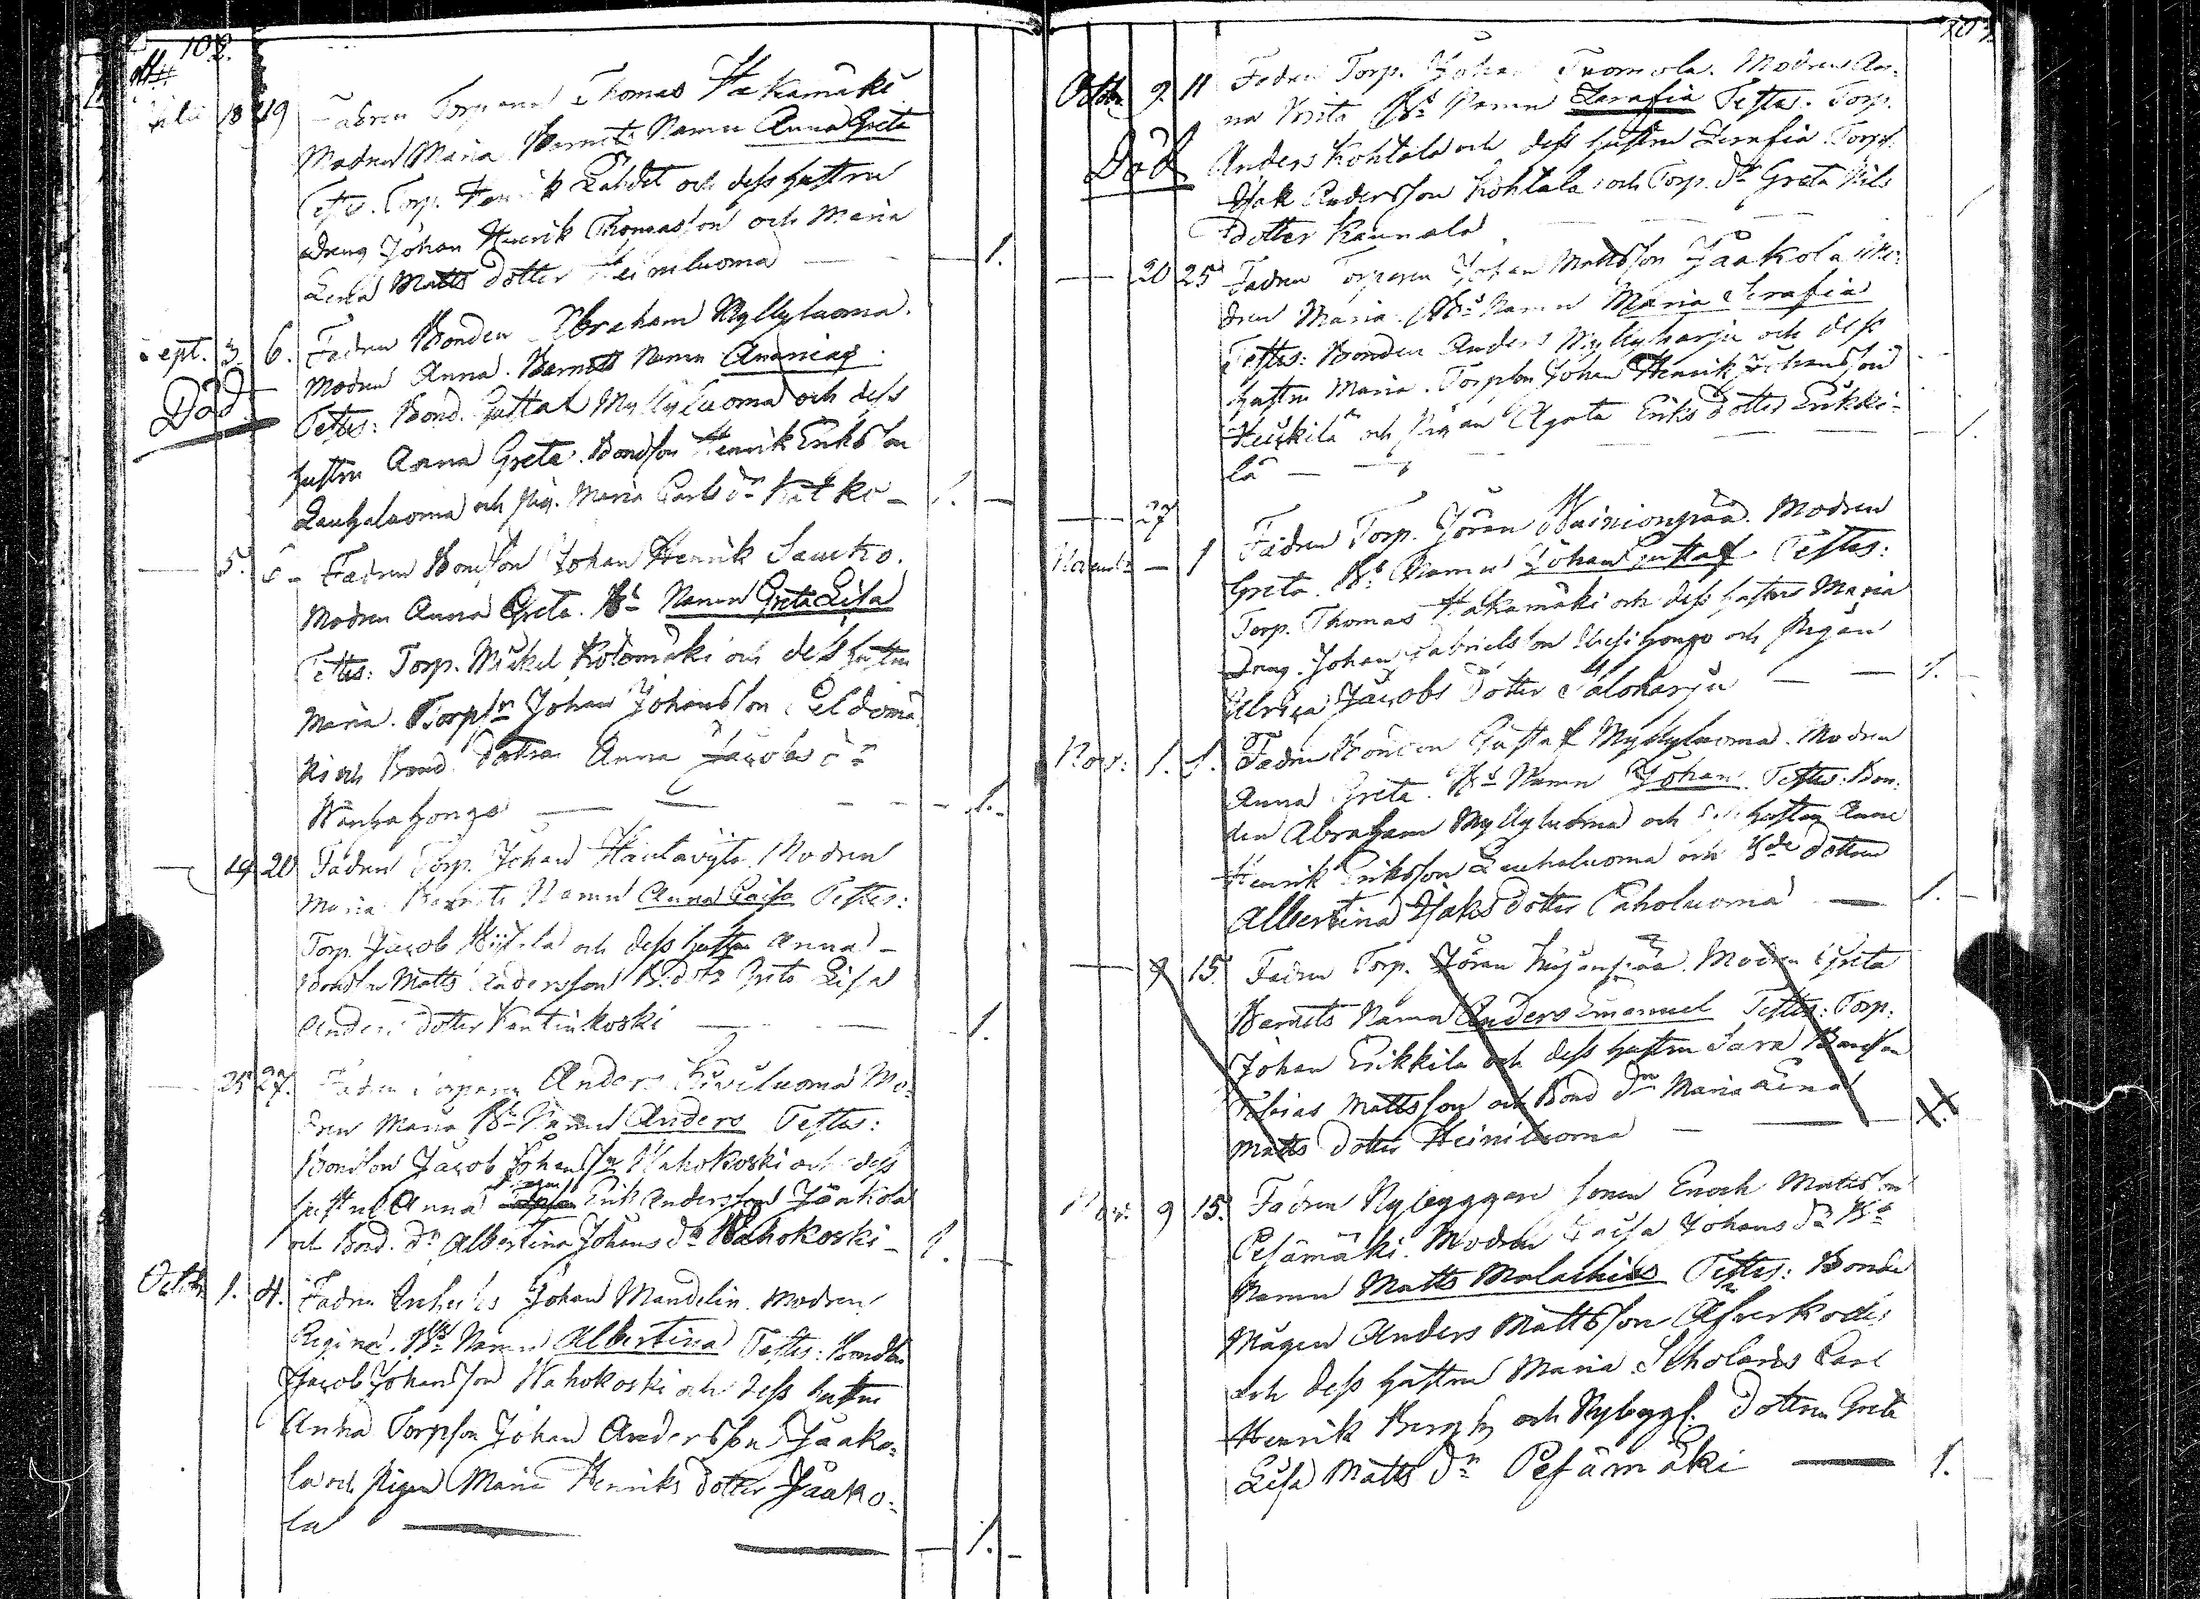 102.
18 19 Fadren Torparen Thomas Hakamäki
Modren Maria Barnets Namn Anna Greta
Testes. Torp. Henrik Lahdet och dess hustru
dreng Johan Henrik Thomasson och Maria
Lena Matts dotter Heiniluoma — 1.
Sept. 3 6. Fadren Bonden Abraham Myllyluoma.
Död
Modren Anna. Barnets Namn Ananias.
Testes: Bond. Gustaf Myllyluoma och dess
hustru Anna Greta. Bondson Henrik Eriksson
Lauhaluoma och pig. Maria Carls dr — 1. —
— 5. 6 – Fadren Bondson Johan Henrik Saucko.
Modren Anna Greta. Bts Namn Greta Lisa
Testes: Torp. Mickel Kotomäki och dess hustru
Maria. Torpsn Johan Johansson Peldomä
ki och Bond. Dottren Anna Jacobs dr
Wanhahongo — — — 1.
— 19 20 Fadren Torp. Johan Hautaviita. Modren
Maria Barnets Namn Anna Caisa Testes:
Torp. Jacob och dess hustru Anna –
Bondson Matts Andersson B. dotr Greta Lisa
Anders dotter Kentinkoski — — 1.
— 25 27. Fadren Torparen Anders Kiviluoma Mo-
dren Maria Bts Namn Anders Testes:
Bondson Jacob Johansson Wahokoski och dess
hustru Anna Erik Andersson Jåakola
och Bond. dr Albertina Johans dr Wahokoski – 1. —
Octobr 1. 4. Fadren Inhyses Johan Mandelin. Modren
Regina. Bts Namn Albertina Testes: Bondson
Jacob Johansson Wahokoski och dess hustru
Anna Torpson Johan Andersson Jåako-
la och pigan Maria Henriks dotter Jåako-
la — — 1. –
103.
Octobr 9. 11 Fadren Torp. Johan Tuomola. Modren An-
na Brita Bts Namn Serafia Testes. Torp.
Död
Anders Kohtala och dess hustru Serafia. Torps.
Isak Andersson Kohtala och Torp. dr Greta Nils
dotter Kaunola — — —
— 20 25 Fadren Torparen Johan Mattsson Jåakola Mo-
dren Maria. Bts Namn Maria Serafia
Testes: Bonden Anders Myllyharju och dess
hustru Maria. Torpson Johan Henrik Johansson
Heikkilä och Pigan Agata Eriks dotter Erikki-
lä — — — 1.
— 27
Novembr — 1 Fadren Torp. Jöran Wainionpää. Modren
Greta. Bts Namn Johan Gustaf Testes:
Torp. Thomas Hakamäki och dess hustru Maria
Dreng. Johan Gabrielsson och Pigan
Ulrica Jacobs dotter Saloharju — — 1. —
Nov: 1. 1. Fadren Bonden Gustaf Myllyluoma. Modren
Anna Greta. Bts Namn Johan. Testes: Bon-
den Abraham Myllyluoma och dess hustru Anna
Henrik Eriksson Lauhaluoma och Bde dottren
Albertina Isaks dotter Paholuoma — 1. —
— 9 15. Fadren Torp. Jöran Kujanpää. Modren Greta
Barnets Namn Anders Emanuel Testes: Torp.
Johan Erikkila och dess hustru Sara Bondson
Tobias Mattsson och Bond dr Maria Lena
Matts dotter Heiniluoma — —
Nov: 9 15. Fadren Nybyggare sonen Enoch Mattsson
Pesämäki. Modren Caisa Johans dr Bts
Namn Matts Malachias Testes: Bonde
Mågen Anders Mattsson
och dess hustru Maria. Scholares Carl
Henrik Bergh och Nybyggs. Dottren Greta
Lisa Matts dr Pesämäki — 1. —